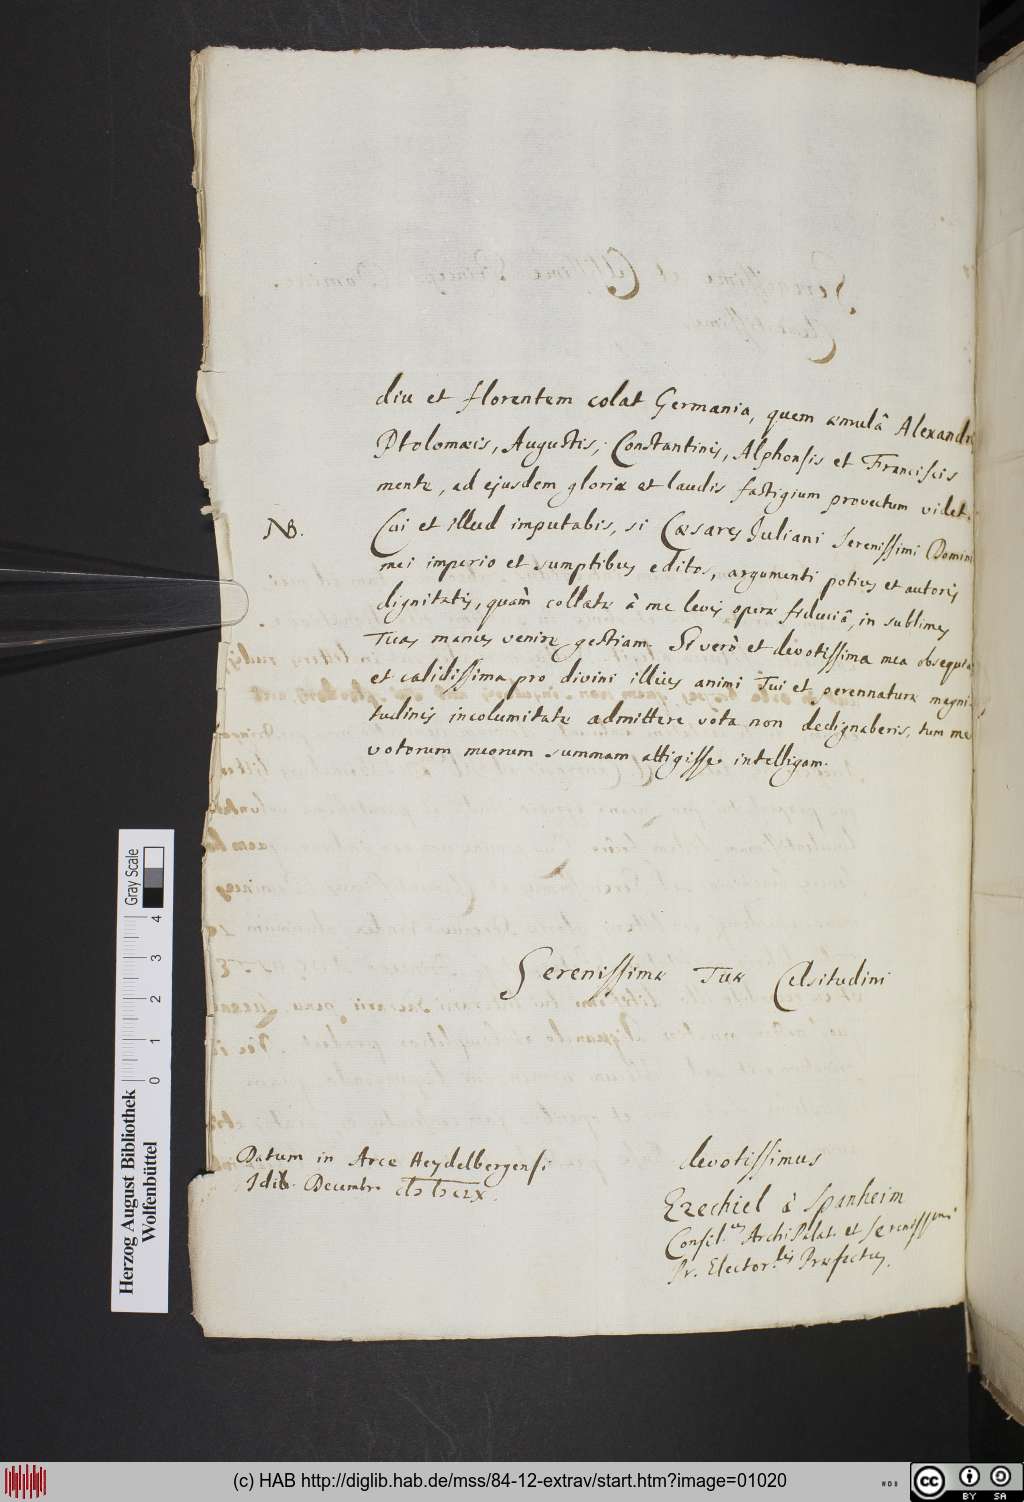 diu et florentem colat Germania, quem æmulâ Alexandri
Ptolomæis, Augustis, Constantinis, Alphonsis et Franciscis
mente, ad ejusdem gloriæ et laudis fastigium provectum videt.
NB.
Cui et illud imputabis, si Cæsares Juliani Serenissimi Domini
mei imperio et sumptibus editos, argumenti potius et autoris
dignitatis, quàm collatæ à me levis operæ fiduciâ, in sublimes
Tuas manus venire gestiam. Si verò et devotissima mea obsequia
et calidissima pro divini illius animi Tui et perennaturæ magni-
tudinis incolumitate admittere vota non dedignaberis, tum me
votorum meorum summam attigisse intelligam.
Serenissimæ Tuæ Celsitudini
Datum in Arce Heydelbergensi
Idib. Decembr.
devotissimus
Ezechiel à Spanheim
Consil. us ArchiPalat. et Serenissimi
Pr. Elector. lis Præfectus.
Herzog August Bibliothek
Wolfenbüttel
0 1 2 3 4
Gray Scale
(c) HAB http://diglib.hab.de/mss/84-12-extrav/start.htm?image=01020
cc BY SA